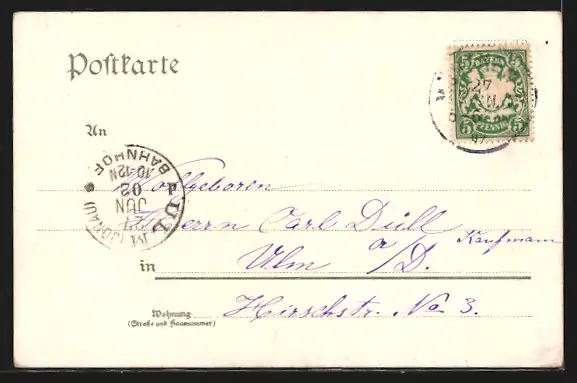 Postkarte
BAYERN
5 5
5 PFENNIG 5
27
07
An
BAHNHOF
10-12N
02
JUN
ULM (DONAU)
Wohlgeboren
Herrn Carl Düll
Kaufmann
in Ulm a/D.
Wohnung
(Straße und Hausnummer)
Hirschstr. No 3.